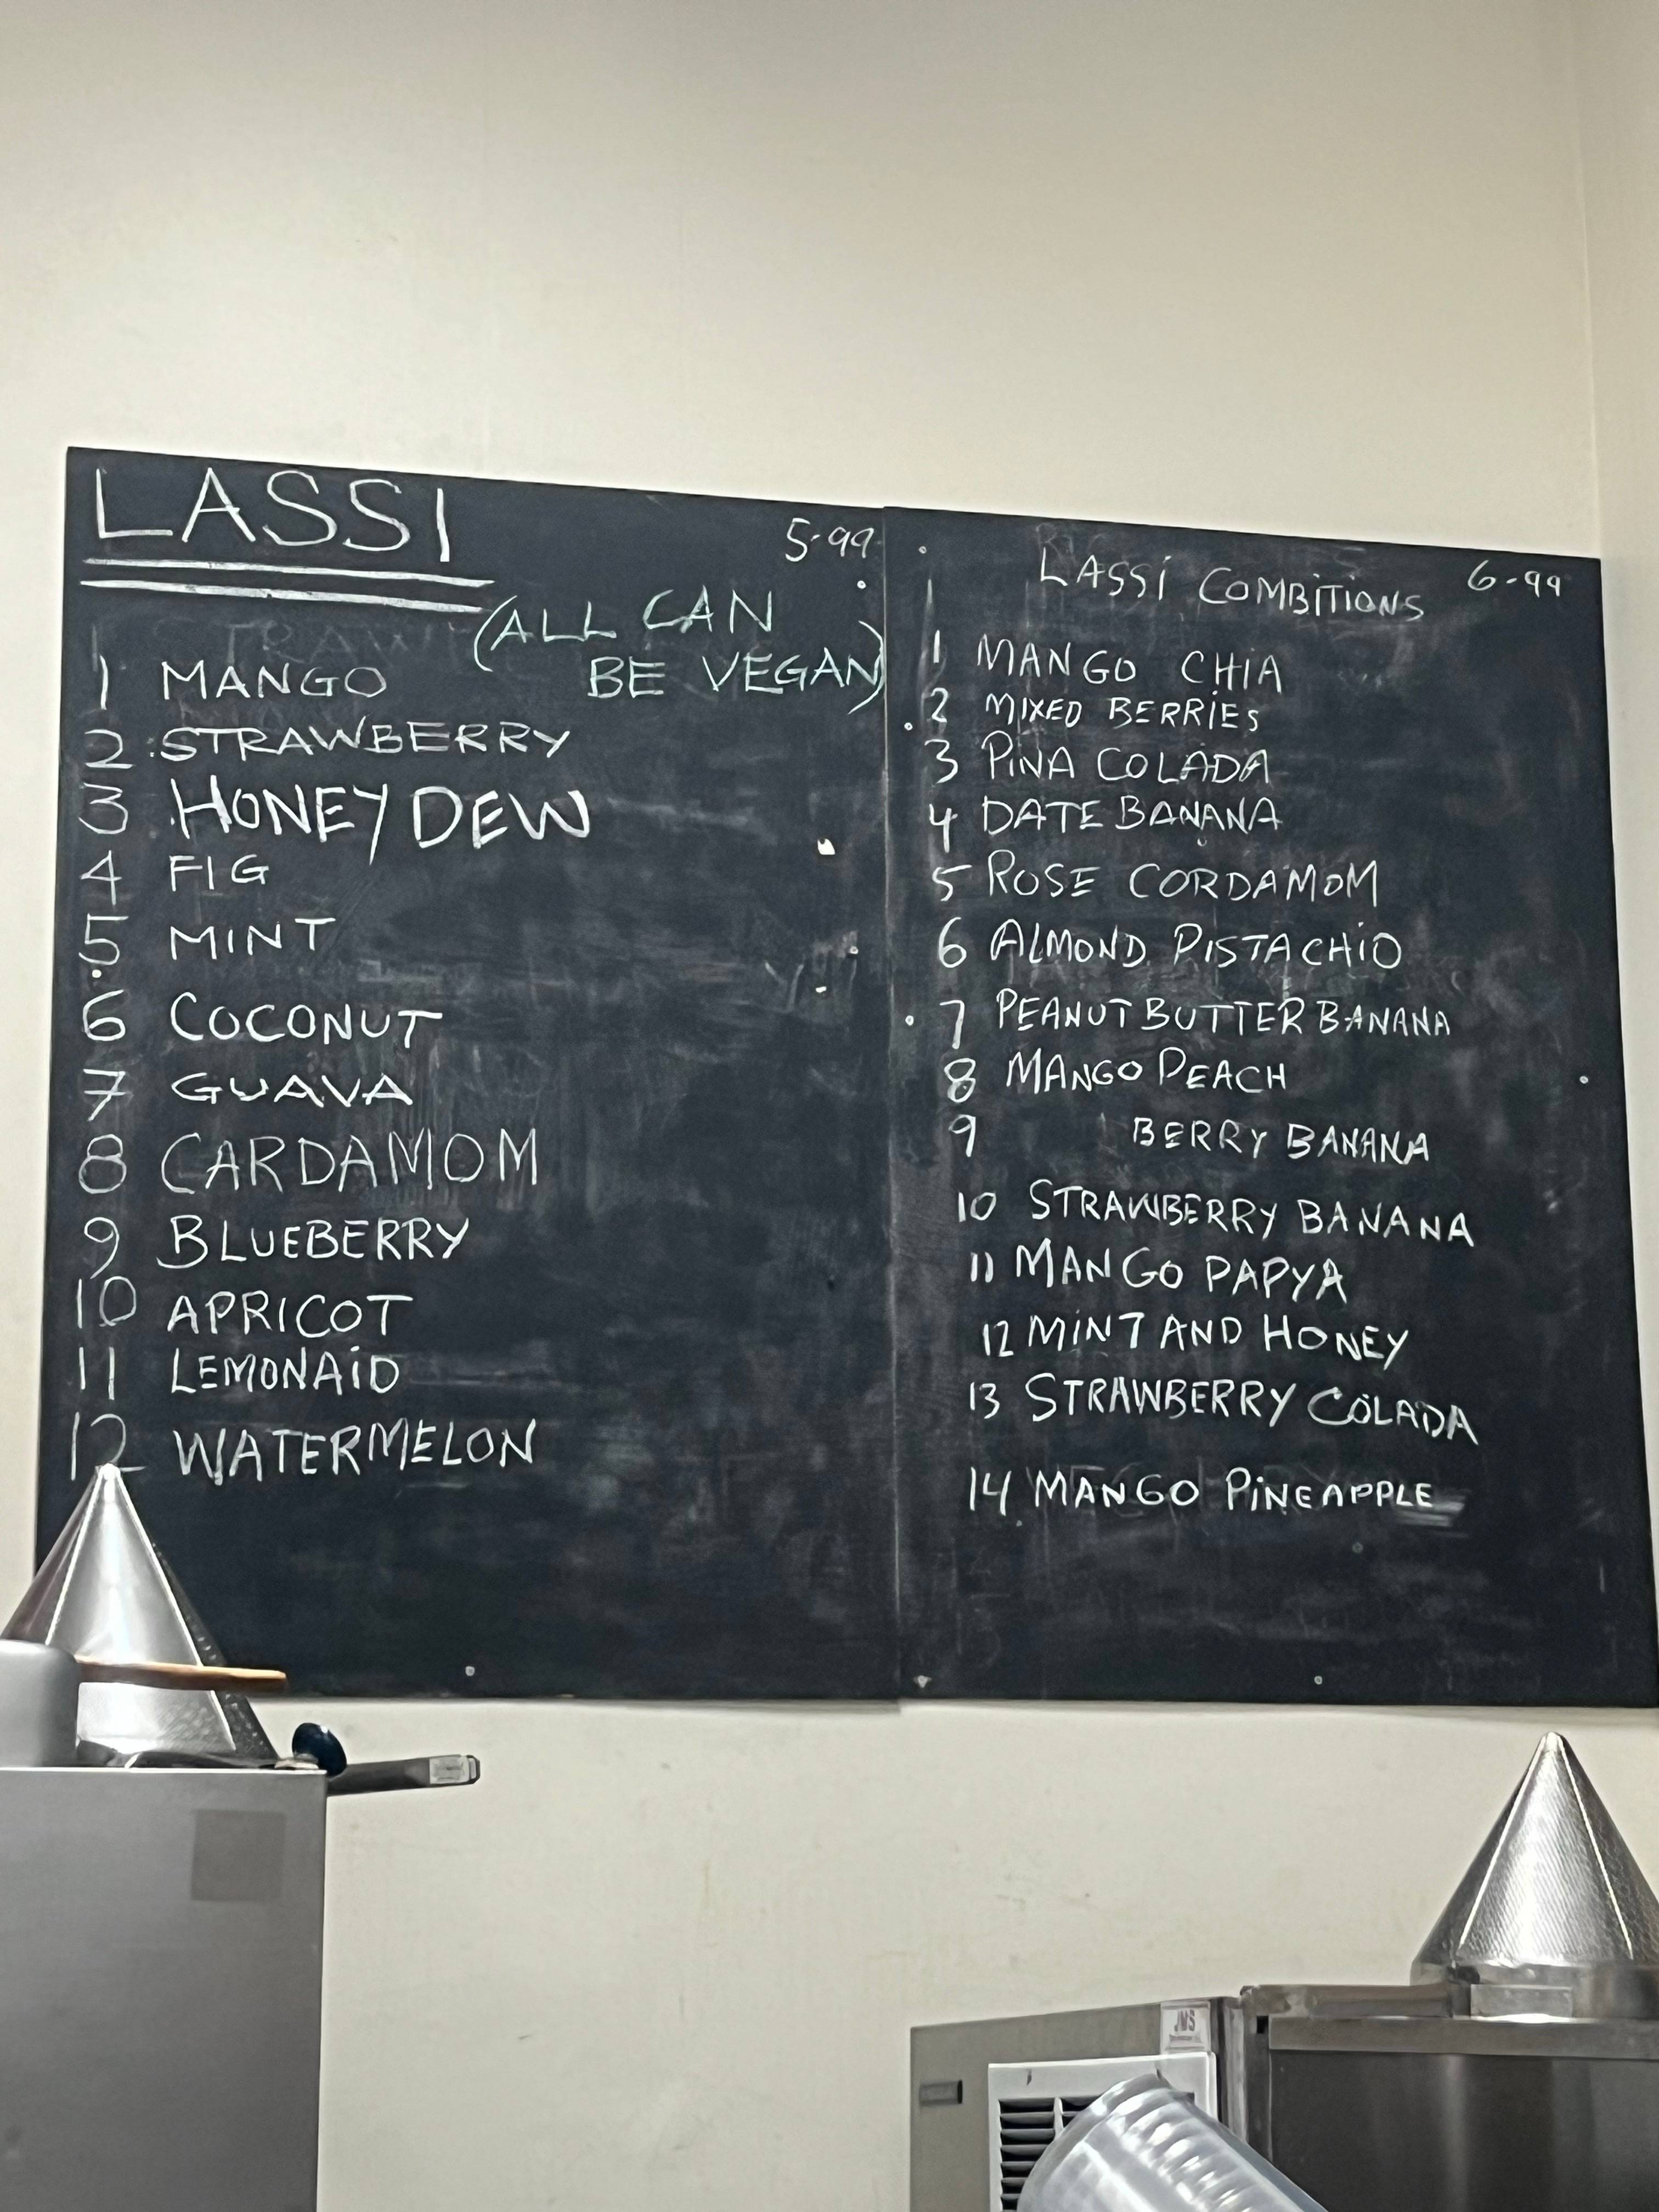 LASSI
5-99
(ALL CAN
BE VEGAN)
1 MANGO
2 STRAWBERRY
3 HONEYDEW
4 FIG
5 MINT
6 COCONUT
7 GUAVA
8 CARDAMOM
9 BLUEBERRY
10 APRICOT
11 LEMONAiD
12 WATERMELON
LASSi COMBiTiONS 6-99
1 MANGO CHiA
2 MIXED BERRiES
3 PiNA COLADA
4 DATE BANANA
5 ROSE CORDAMOM
6 ALMOND PISTACHiO
7 PEANUT BUTTER BANANA
8 MANGO PEACH
9 BERRY BANANA
10 STRAWBERRY BANANA
11 MANGO PAPYA
12 MiNT AND HONEY
13 STRAWBERRY COLADA
14 MANGO PiNEAPPLE
JMS